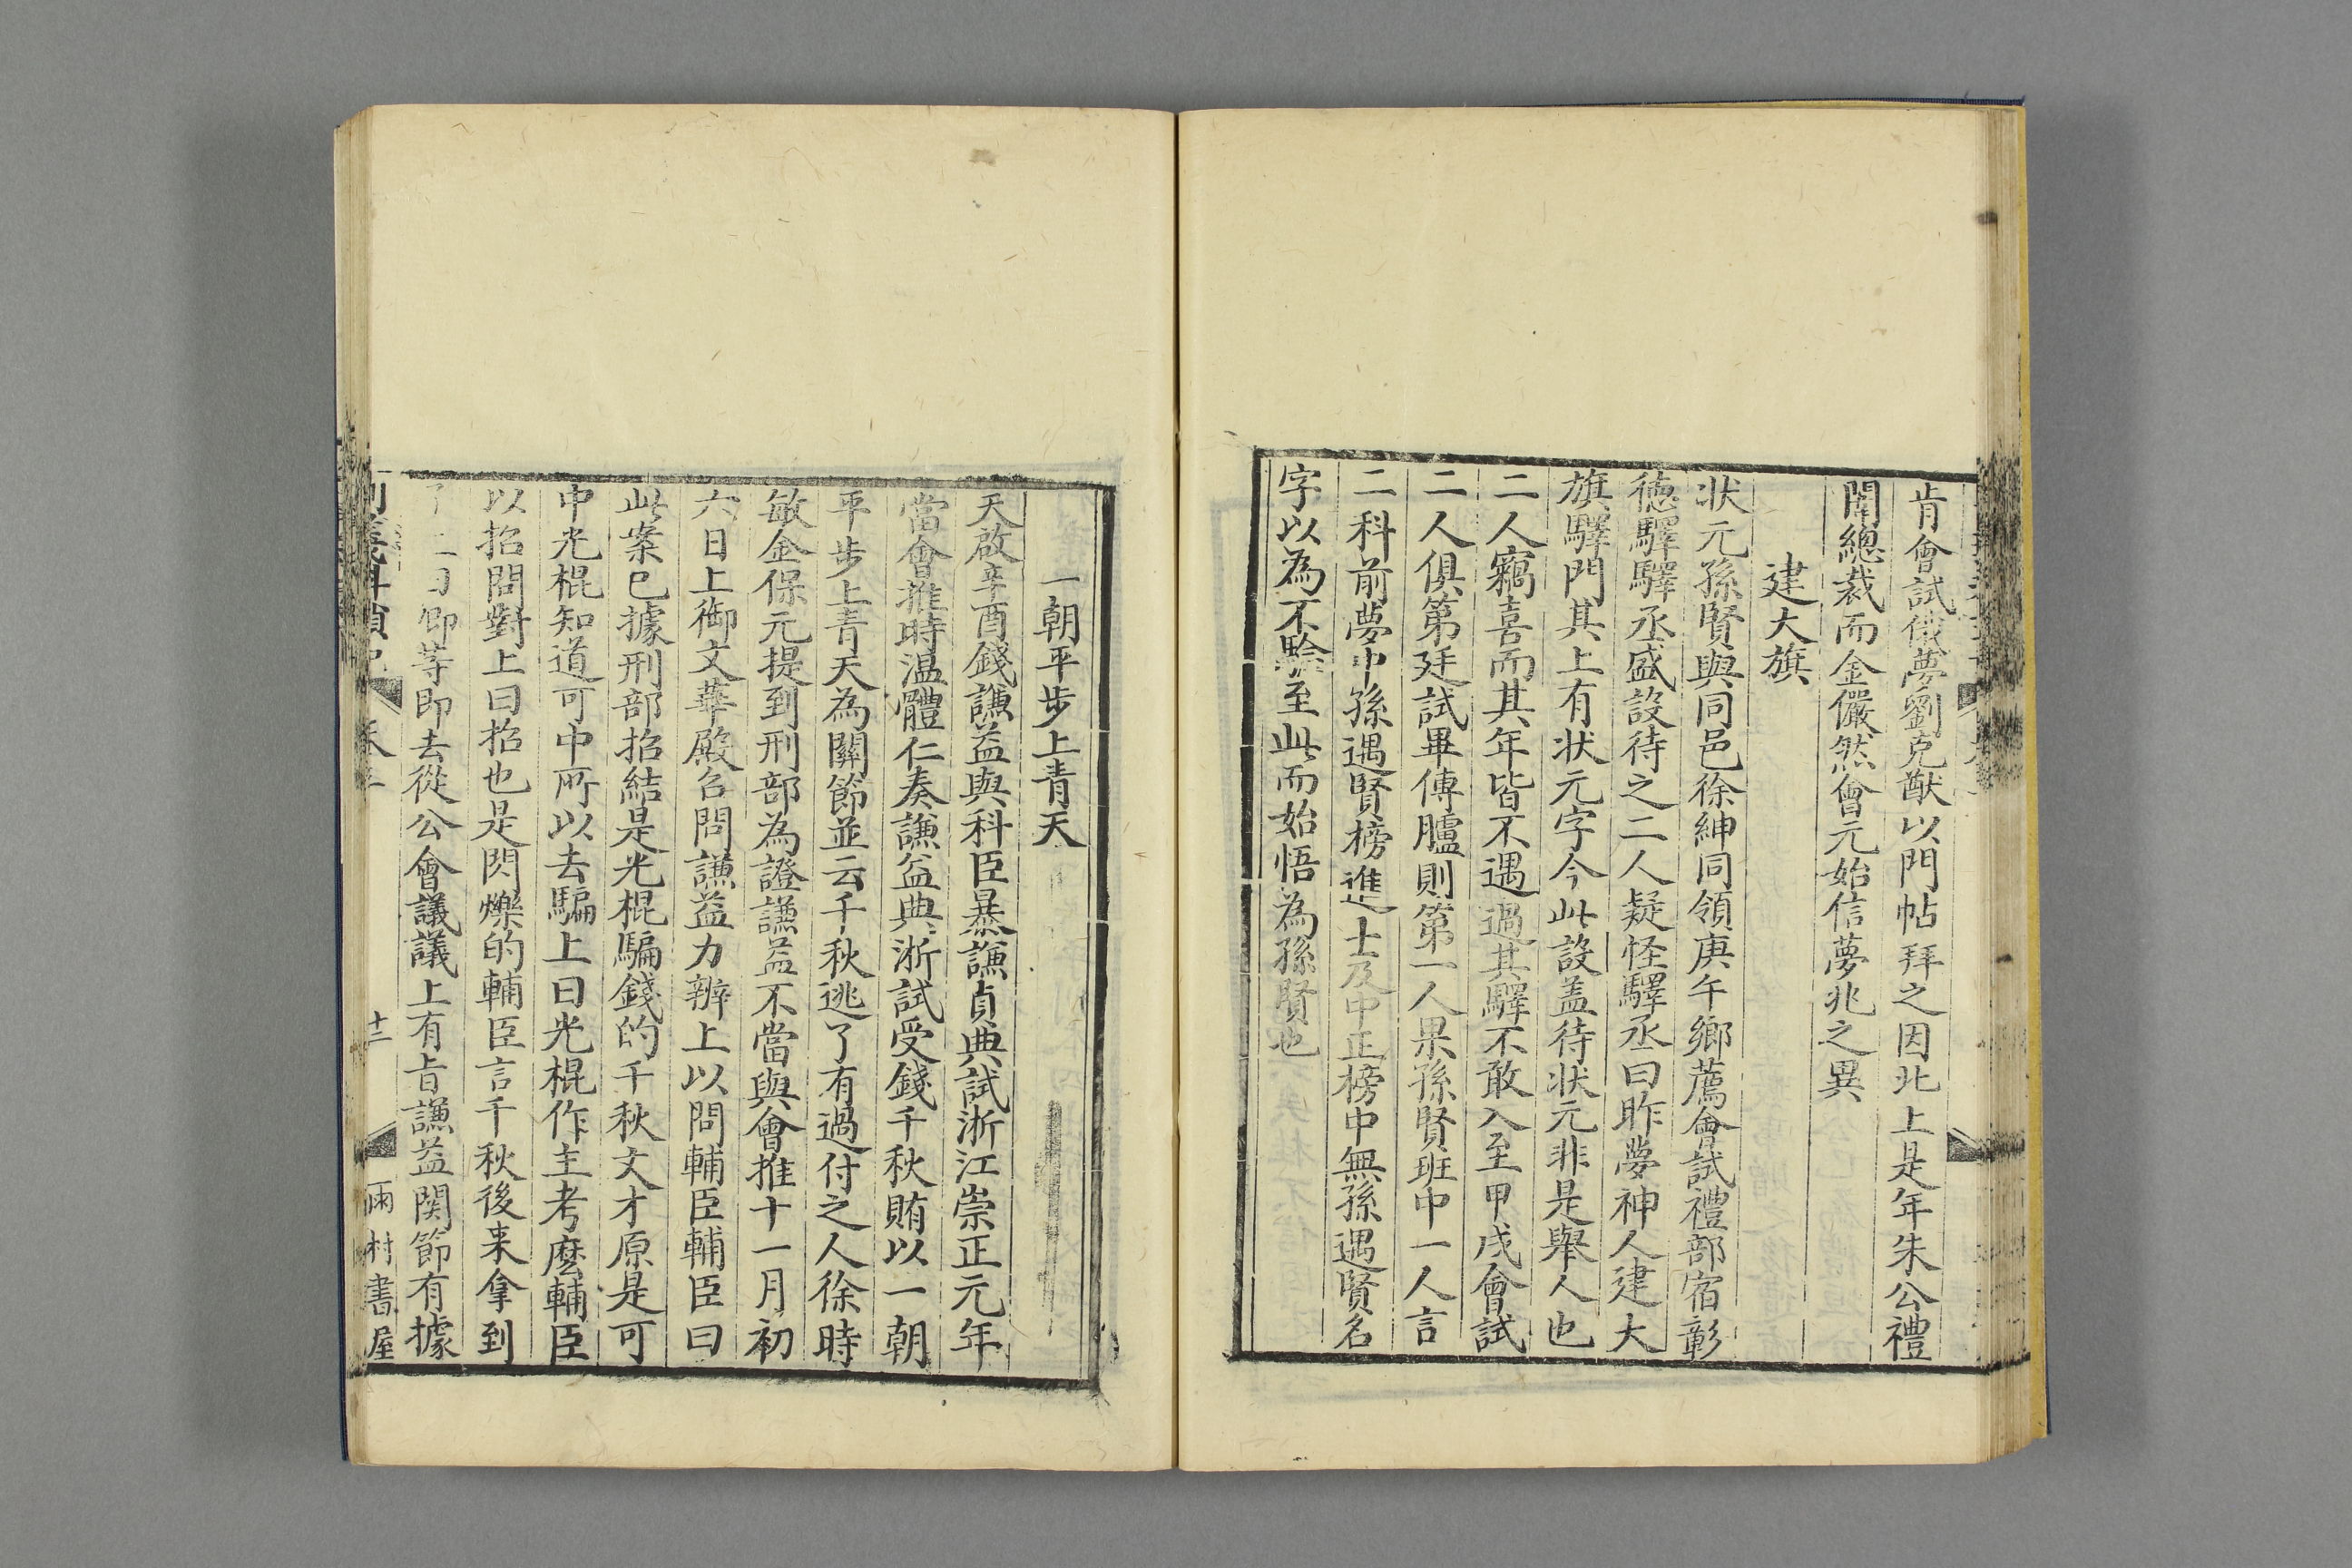 肯會試俄夢劉克猷以門帖拜之因北上是年朱公禮
闈總裁而金儼然會元始信夢兆之異
建大旗
状元孫賢與同邑徐紳同領庚午鄉薦會試禮部宿彰
德驛驛丞盛設待之二人疑怪驛丞曰昨夢神人建大
旗驛門其上有状元字今此設盖待状元非是舉人也
二人竊喜而其年皆不遇過其驛不敢入至甲戌會試
二人俱第廷試畢傳臚則第一人果孫賢班中一人言
二科前夢中孫遇賢榜進士及中正榜中無孫遇賢名
字以為不驗至此而始悟為孫賢也
一朝平步上青天
天啟辛酉錢謙益與科臣暴謙貞典試浙江崇正元年
當會推時温體仁奏謙益典浙試受錢千秋賄以一朝
平步上青天為關節並云千秋逃了有過付之人徐時
敏金保元提到刑部為證謙益不當與會推十一月初
六日上御文華殿召問謙益力辨上以問輔臣輔臣曰
此案已據刑部招結是光棍騙錢的千秋文才原是可
中光棍知道可中所以去騙上曰光棍作主考麽輔臣
以招問對上曰招也是閃爍的輔臣言千秋後来拿到
了上曰卿等即去從公會議議上有旨謙益関節有據
制義科瑣記 卷三 十三 雨村書屋